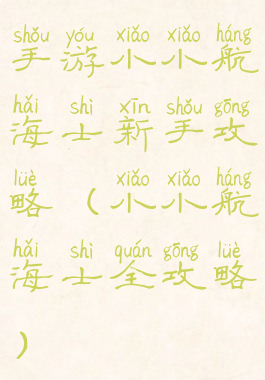 shǒu yóu xiǎo xiǎo háng
手游小小航
hǎi shì xīn shǒu gōng
海士新手攻
lüè xiǎo xiǎo háng
略（小小航
hǎi shì quán gōng lüè
海士全攻略
）